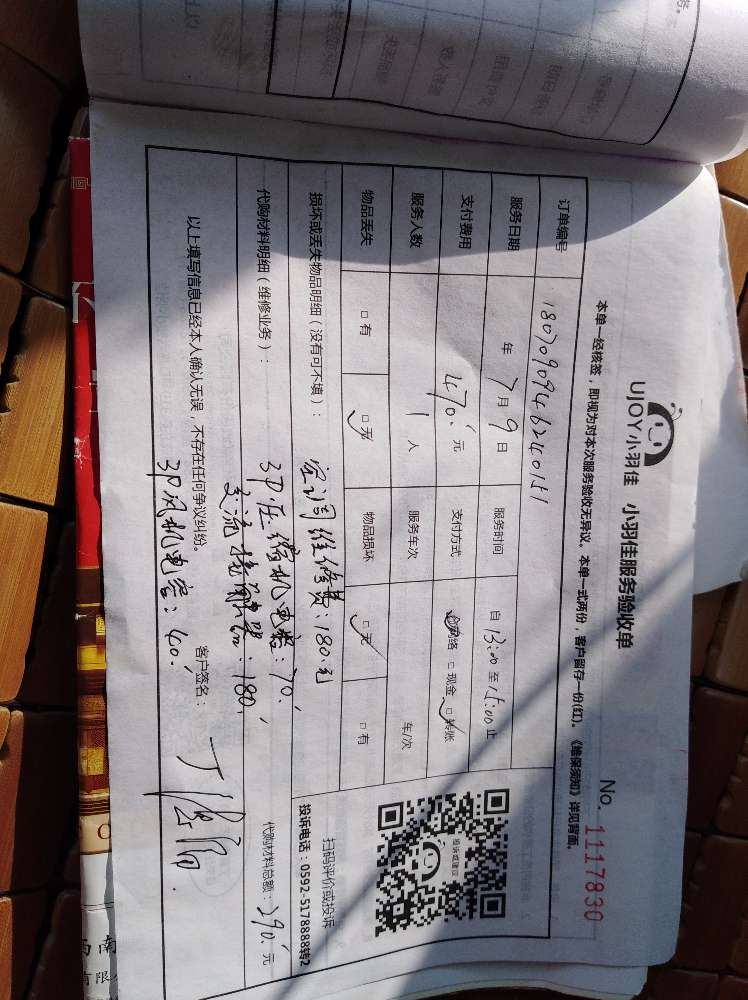 UJOY小羽佳 小羽佳服务验收单
No. 1117830
本单一经核签，即视为对本次服务验收无异议。本单一式两份，客户留存一份(红)。《维保须知》详见背面。
订单编号 1807090946240151
服务日期 年 7月 9日 服务时间 自 13:00 至 15:00 止
支付费用 470 元 支付方式 □网络 □现金 □转账
服务人数 1 人 服务车次 车/次
物品丢失 □有 □无 物品损坏 □无 □有
扫码评价或投诉
投诉电话：0592-5178888转2
损坏或丢失物品明细（没有可不填）：
空调维修费：180元
代购材料明细（维修业务）：
3P压缩机电容：70
交流接触器：180
代购材料总额：290 元
以上填写信息已经本人确认无误，不存在任何争议纠纷。 客户签名：
3P风机电容：40
投诉或建议